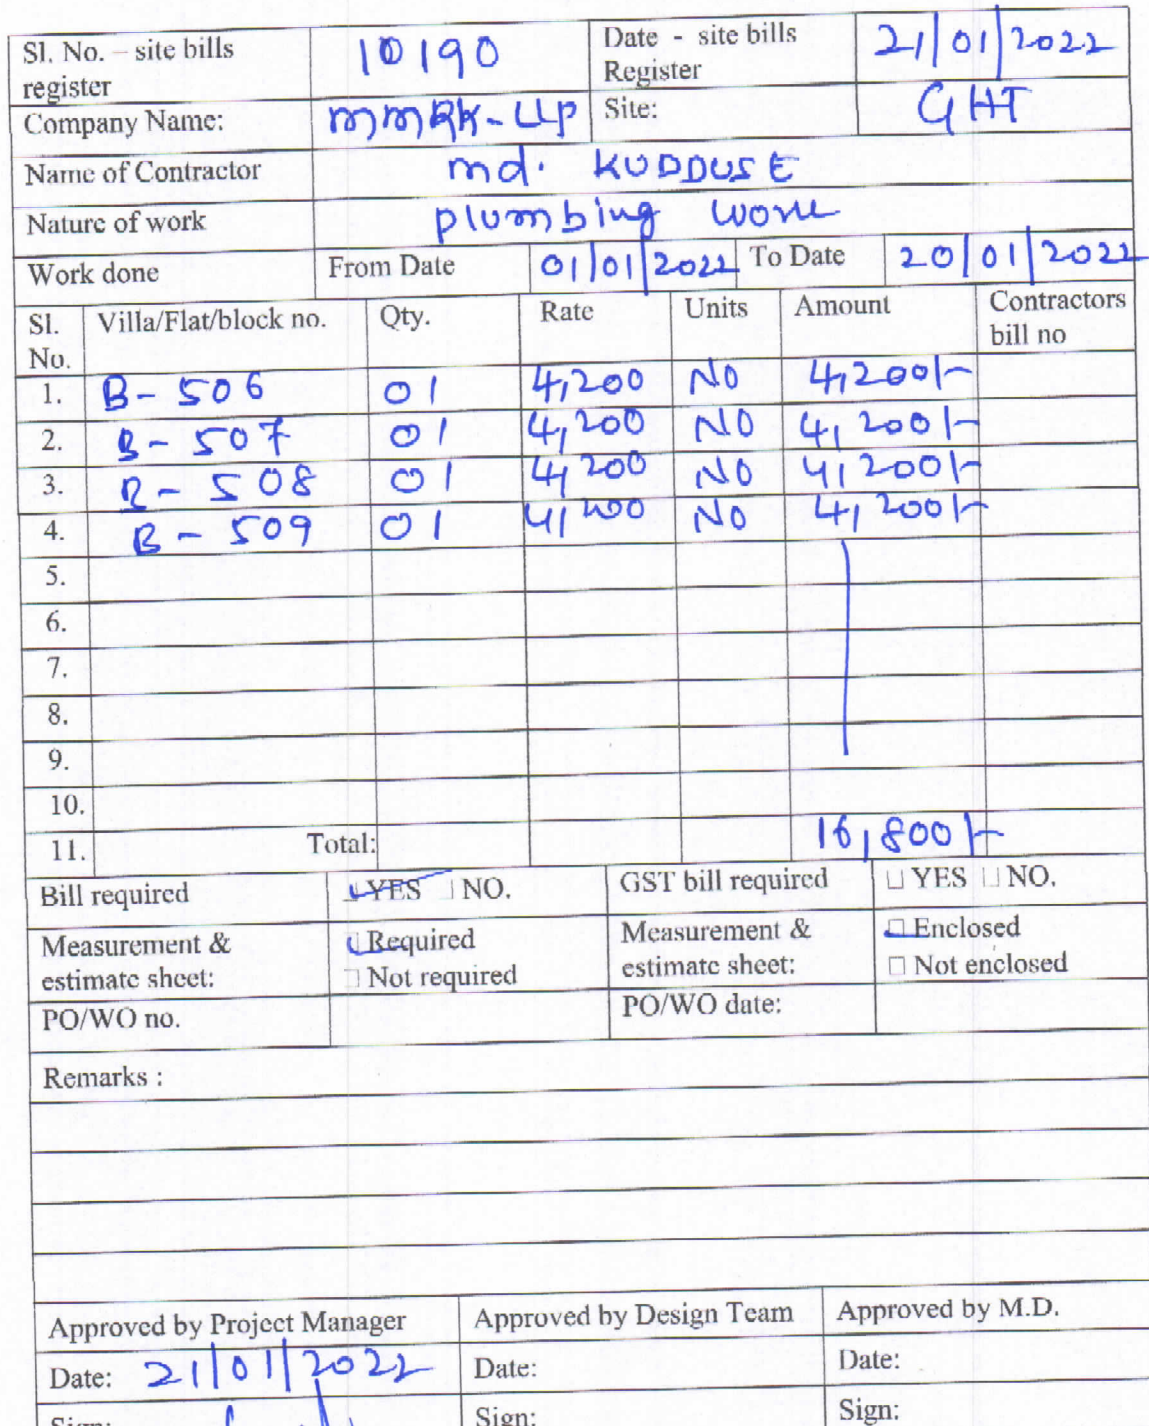 Sl. No. – site bills register 10190 Date - site bills Register 21/01/2022
Company Name: MMRK-LLP Site: GHT
Name of Contractor md. KUDDUSE
Nature of work plumbing work
Work done From Date 01/01/2022 To Date 20/01/2022
Sl. No. Villa/Flat/block no. Qty. Rate Units Amount Contractors bill no
1. B- 506 01 4,200 NO 4,200/-
2. B- 507 01 4,200 NO 4,200/-
3. B- 508 01 4,200 NO 4,200/-
4. B- 509 01 4,200 NO 4,200/-
5.
6.
7.
8.
9.
10.
11. Total: 16,800/-
Bill required YES NO. GST bill required YES NO.
Measurement & estimate sheet: Required Measurement & estimate sheet: Enclosed
Not required Not enclosed
PO/WO no. PO/WO date:
Remarks :
Approved by Project Manager Approved by Design Team Approved by M.D.
Date: 21/01/2022 Date: Date:
Sign: Sign: Sign: